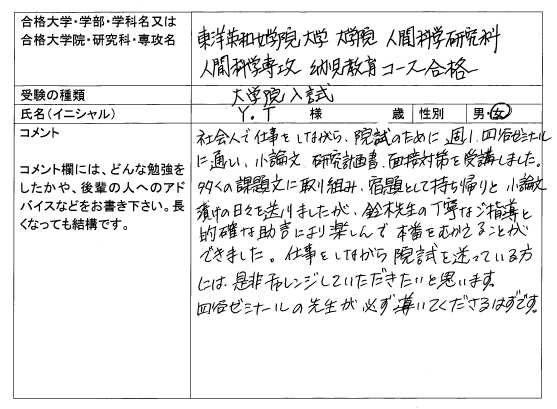 合格大学・学部・学科名又は
合格大学院・研究科・専攻名
東洋英和女学院大学 大学院 人間科学研究科
人間科学専攻 幼児教育コース合格
受験の種類 大学院入試
氏名(イニシャル) Y.T 様 歳 性別 男・女
コメント
コメント欄には、どんな勉強を
したかや、後輩の人へのアド
バイスなどをお書き下さい。長
くなっても結構です。
社会人で仕事をしながら、院試のために週1、四谷ゼミナール
に通い、小論文、研究計画書、面接対策を受講しました。
多くの課題文に取り組み、宿題として持ち帰りと小論文
漬けの日々を送りましたが、鈴木先生の丁寧なご指導と
的確な助言により楽しんで本番をむかえることが
できました。仕事をしながら院試を迷っている方
には是非チャレンジしていただきたいと思います。
四谷ゼミナールの先生が必ず導いてくださるはずです。